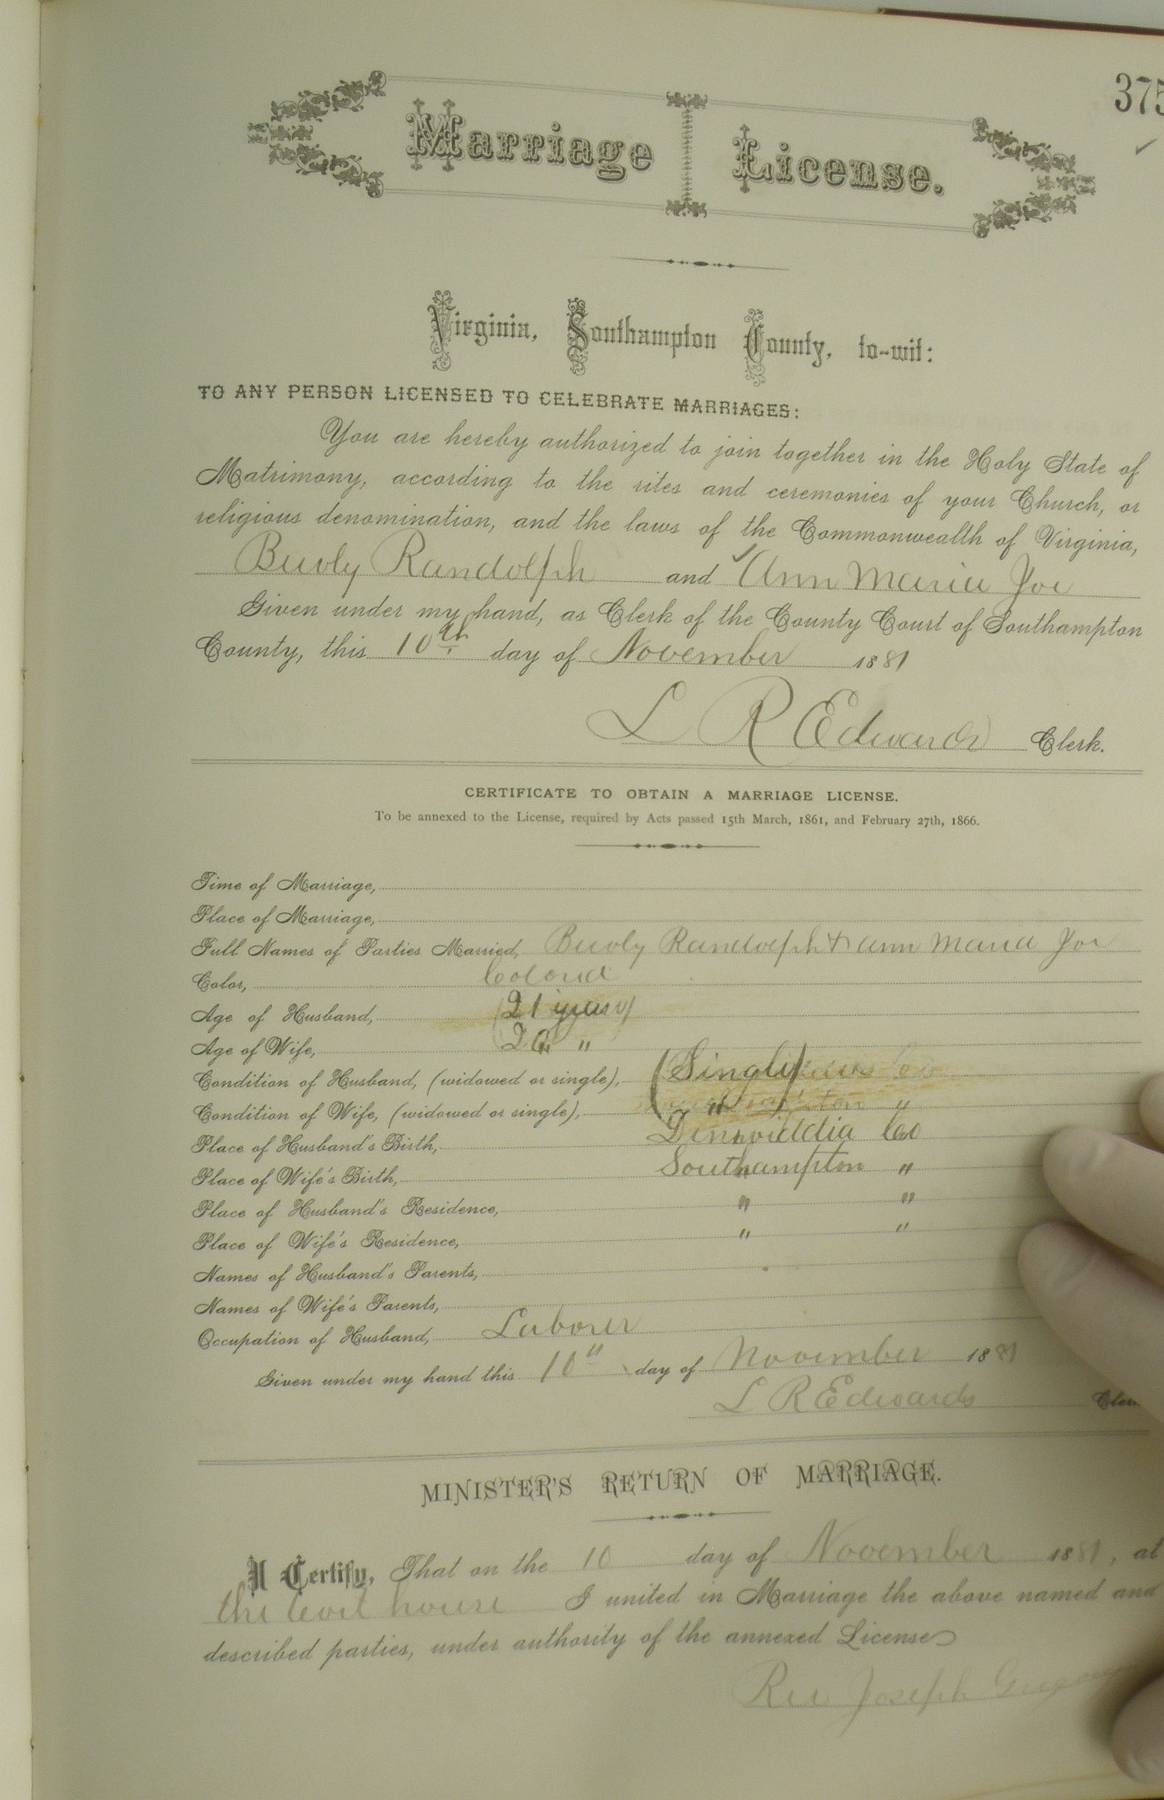 375
Marriage License.
Virginia, Southampton County, to-wit:
TO ANY PERSON LICENSED TO CELEBRATE MARRIAGES:
You are hereby authorized to join together in the Holy State of
Matrimony, according to the rites and ceremonies of your Church, or
religious denomination, and the laws of the Commonwealth of Virginia,
Buvly Randolph and Ann Maria Joe
Given under my hand, as Clerk of the County Court of Southampton
County, this 10th day of November 1881
L R Edwards Clerk.
CERTIFICATE TO OBTAIN A MARRIAGE LICENSE.
To be annexed to the License, required by Acts passed 15th March, 1861, and February 27th, 1866.
Time of Marriage,
Place of Marriage,
Full Names of Parties Married, Buvly Randolph & Ann Maria Joe
Color, Colored
Age of Husband, 21 years
Age of Wife, 20 "
Condition of Husband, (widowed or single), Single
Condition of Wife, (widowed or single), "
Place of Husband's Birth, Dinwiddia Co
Place of Wife's Birth, Southampton "
Place of Husband's Residence, " "
Place of Wife's Residence, " "
Names of Husband's Parents,
Names of Wife's Parents,
Occupation of Husband, Laborer
Given under my hand this 10th day of November 1881
L R Edwards Clerk
MINISTER'S RETURN OF MARRIAGE.
I Certify, That on the 10 day of November 1881, at
the Cort house I united in Marriage the above named and
described parties, under authority of the annexed License
Rev Joseph Gregory